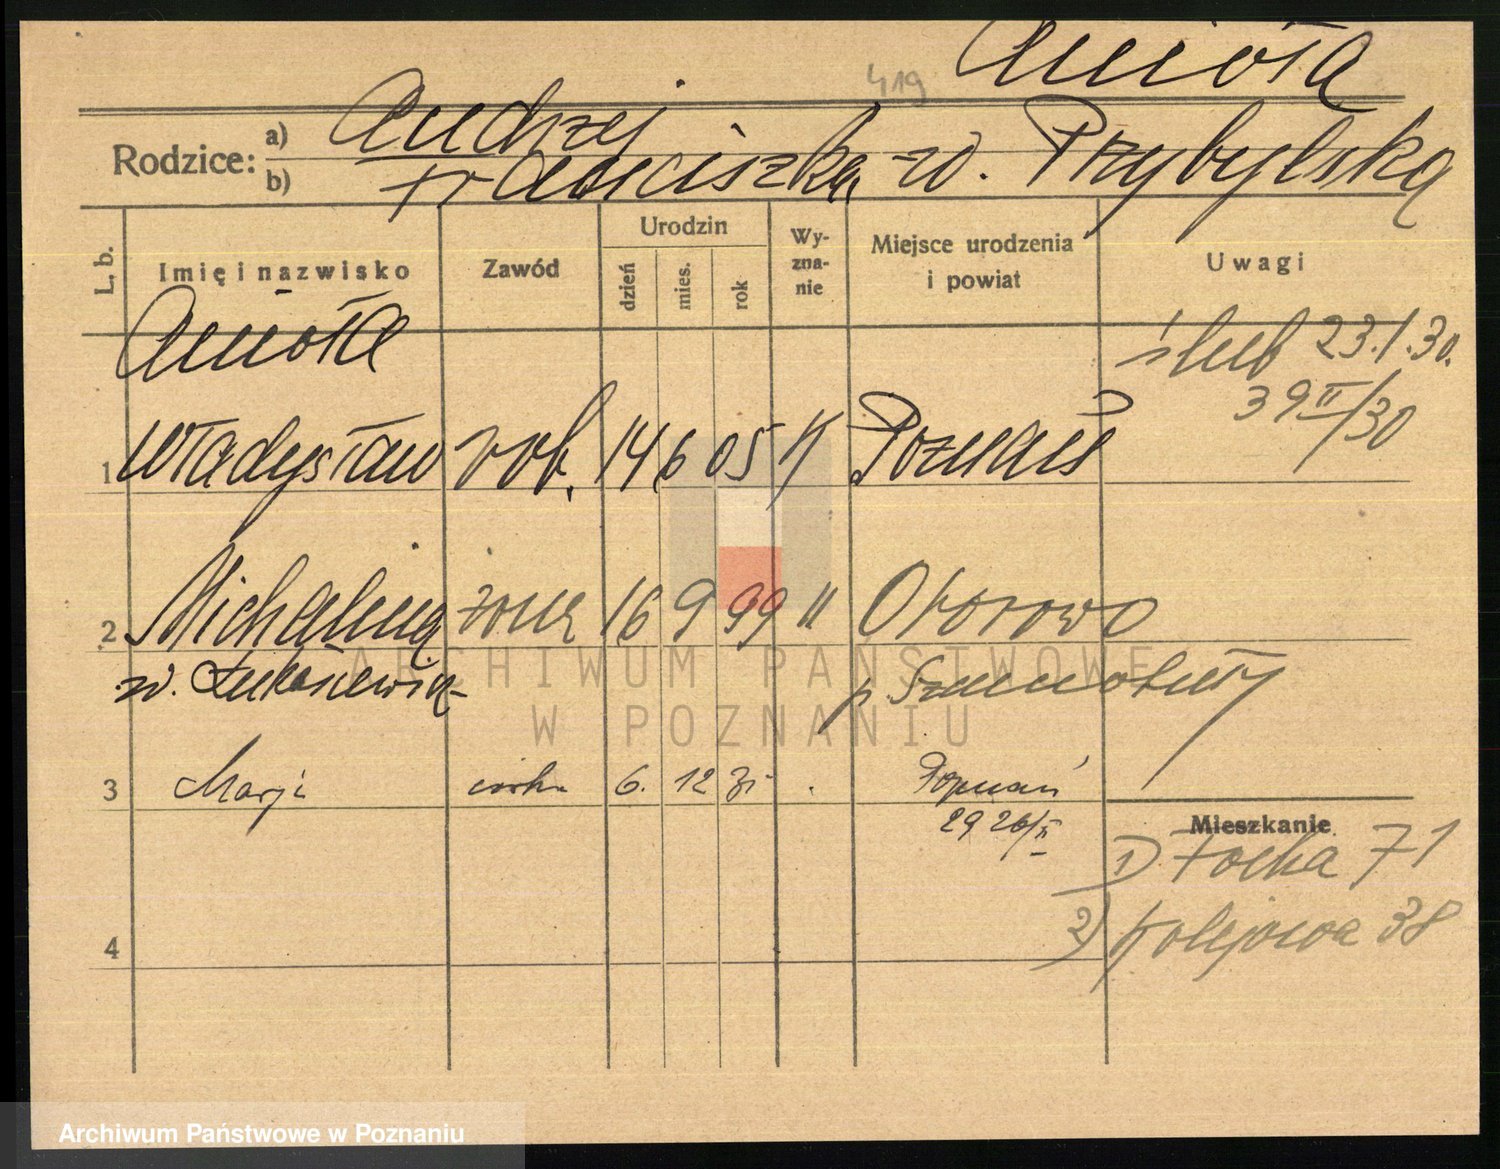 Anioła
419
Rodzice:
a) Andrzej
b) Franciszka zd. Przybylska
L. b.
Imię i nazwisko
Zawód
Urodzin
dzień
mies.
rok
Wy-
zna-
nie
Miejsce urodzenia
i powiat
Uwagi
Anioła
ślub 23.1.30.
39 II/30
1 Władysław rob. 14 6 05 k Poznań
2 Michalina żona 16 9 99 " Otorowo
zd. Łukasiewicz
p. Szamotuły
3 Marja córka 6. 12 31 Poznań
29 26/II
Mieszkanie
1) Focha 71
2) Kolejowa 38
4
ARCHIWUM PAŃSTWOWE
W POZNANIU
Archiwum Państwowe w Poznaniu